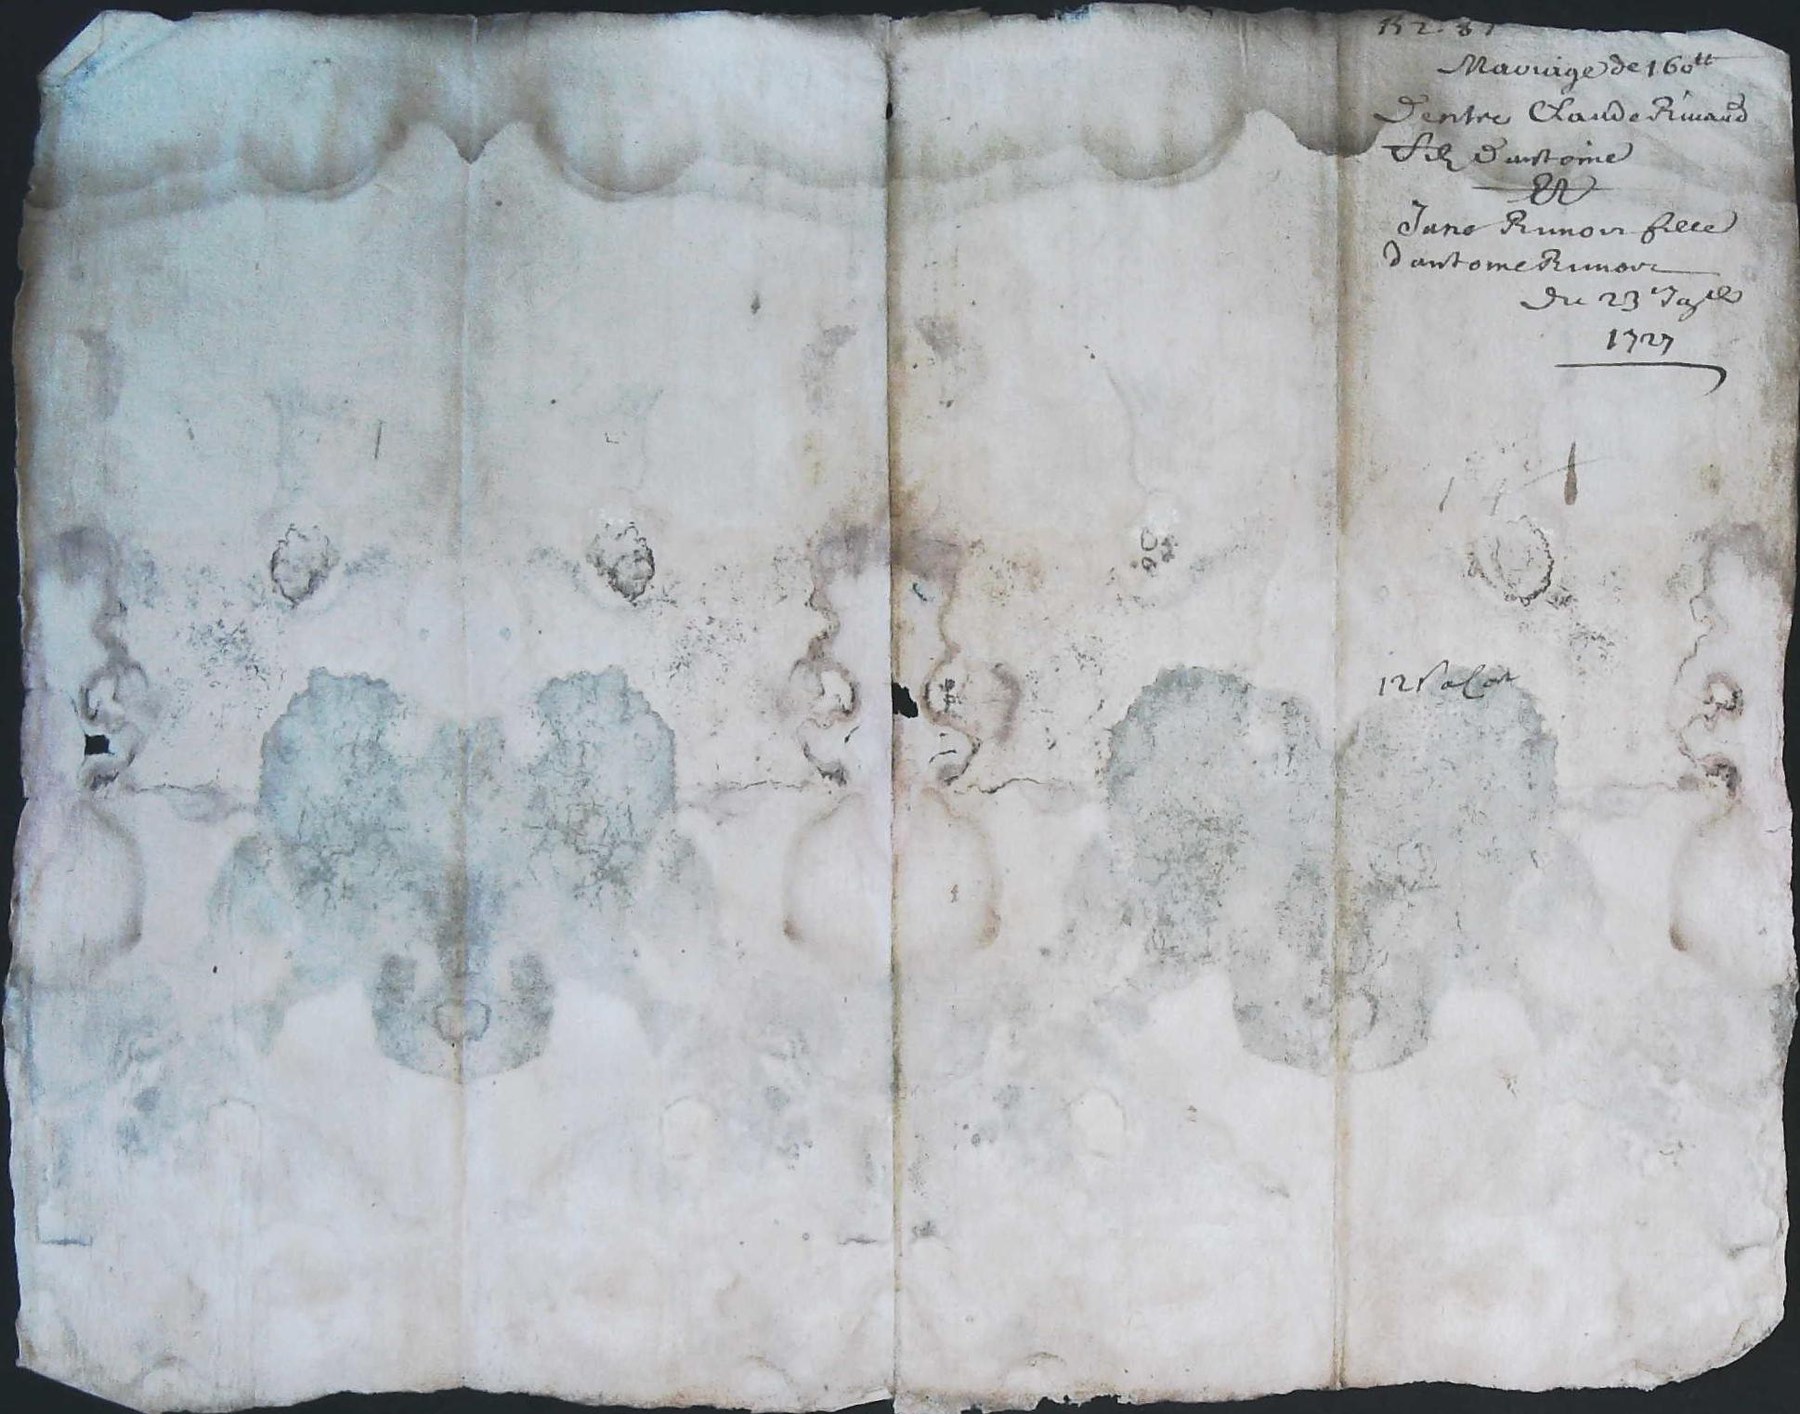 Mariage de 160tt
D'entre Claude Rinaud
filz d'antoine
Et
Jane Rimour fillee
d'antoine Rimour
du 23e
1727